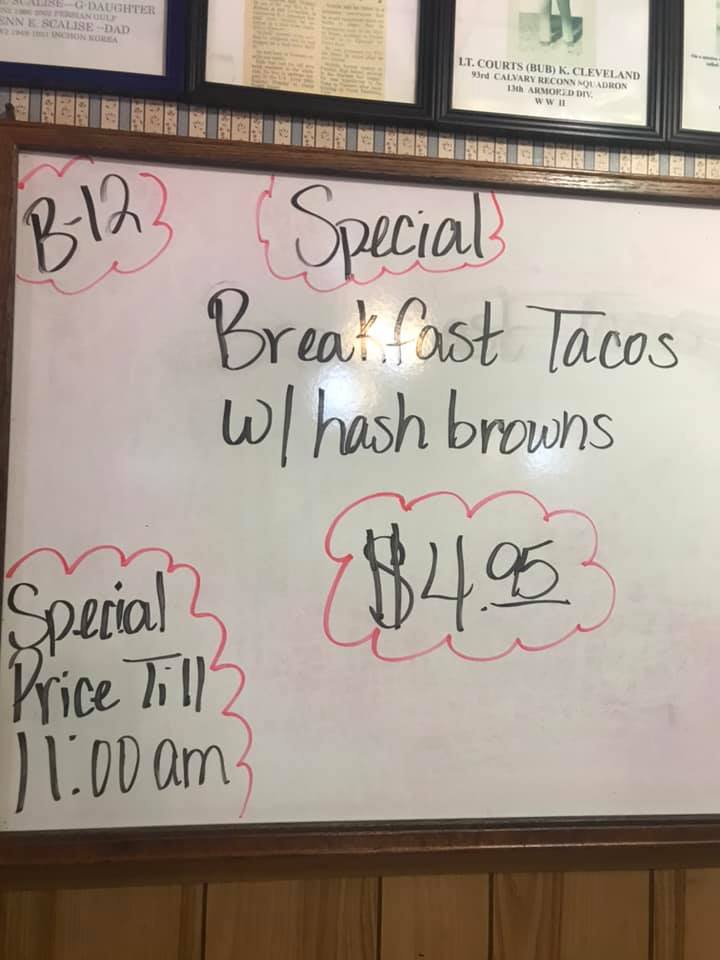 SCALISE--G-DAUGHTER
PERSIAN GULF
ENN E. SCALISE --DAD
INCHON KOREA
LT. COURTS (BUB) K. CLEVELAND
93rd CALVARY RECONN SQUADRON
13th ARMORED DIV.
W W II
B-12
Special
Breakfast Tacos
w/ hash browns
$4.95
Special
Price Till
11:00 am